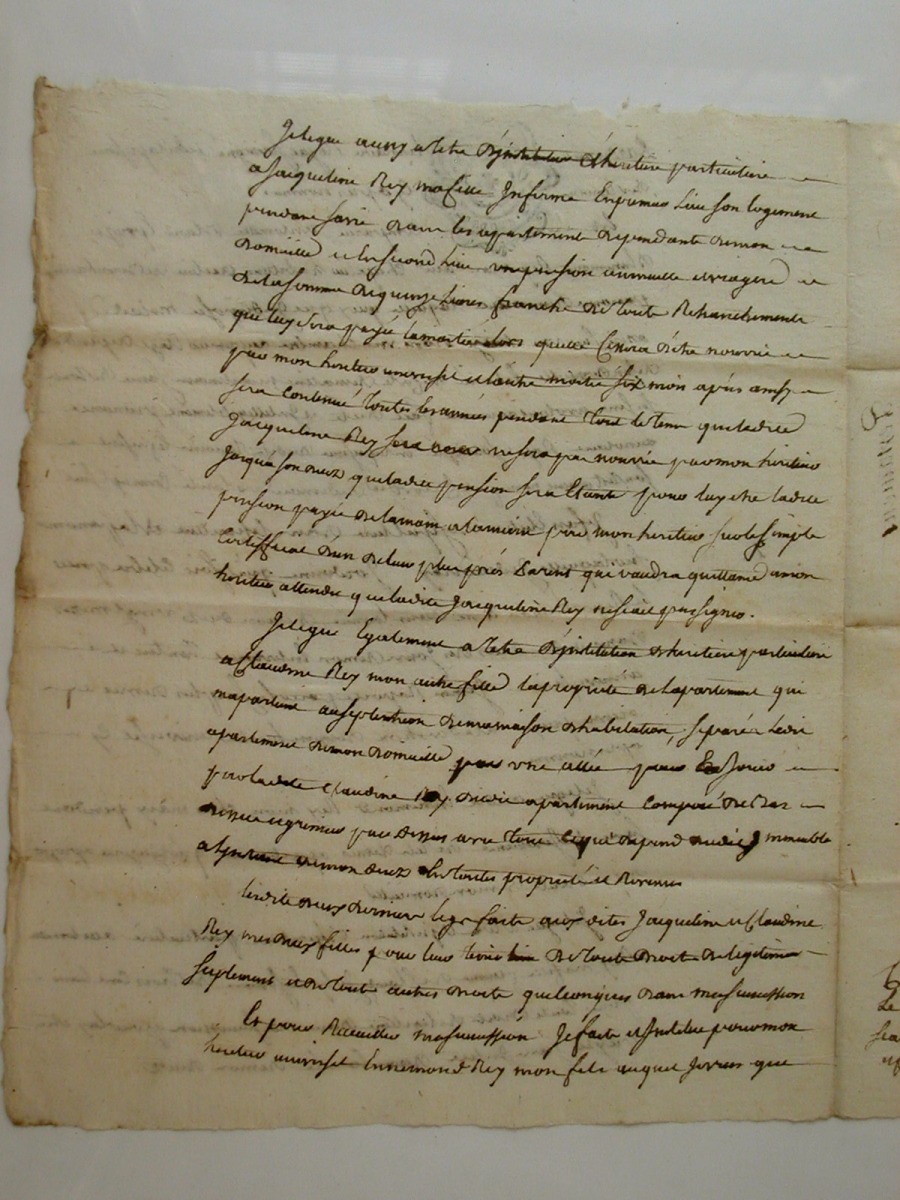 Je legue aussy a titre d'institution d'heritiere particuliere
a Jacqueline Rey ma fille Infirme En premier Lieu son logement
pendant sa vie dans les appartement dependants de mon
domicille et En second Lieu une pension annuelle et viagere
de la somme de quinze Livres franche de toute Retranchements
qui luy sera payé la moitie lors quelle Cessera d'être nourrie
par mon heritier universel et lautre moitié six mois après ainsy
sera Continué toutes les années pendant tout le tems que ladite
Jacqueline Rey ne sera pas nourrie par mon heritier
Jusqua son deces que ladite pension sera Eteinte pour luy etre ladite
pension payée de la main a la mienne par mon heritier sur le simple
Certifficat d'un de leur plus près Parent qui vaudra quittance a mon
heritier attendu que ladite Jacqueline Rey ne scait pas signer.
Je legue Egalement a titre d'institution d'heritiere particuliere
a Claudine Rey mon autre fille la propriété de lapartement qui
mapartient au septentrion de ma maison d'habitation, separé Ledit
apartement de mon domicille par une allée pour En Jouir
par ladite Claudine Rey dudit apartement Composé de bas
et grenier par dessus avec tout Ce qui depend dudit immeuble
a linstant de mon deces En toutes propriété et Revenus
Lesdits deux dernier legs faits aux dites Jacqueline et Claudine
Rey mes deux filles pour leur tenir lieu de tout droit de legitime
suplement et de tout autres droits quelconques dans ma succession
Et pour Recueillir ma succession Je fait et Institue pour mon
heritier universel Ennemond Rey mon fils auquel Je veux que